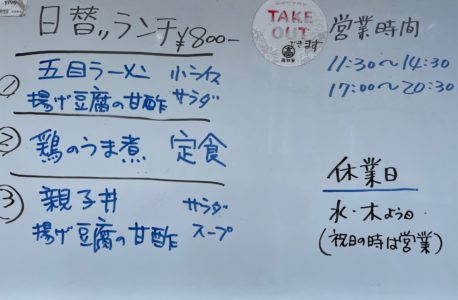 日替りランチ ¥800-
① 五目ラーメン 小ライス
揚げ豆腐の甘酢 サラダ
② 鶏のうま煮 定食
③ 親子丼 サラダ
揚げ豆腐の甘酢 スープ
TAKE
OUT
できます
営業時間
11:30〜14:30
17:00〜20:30
休業日
水・木よう日
(祝日の時は営業)